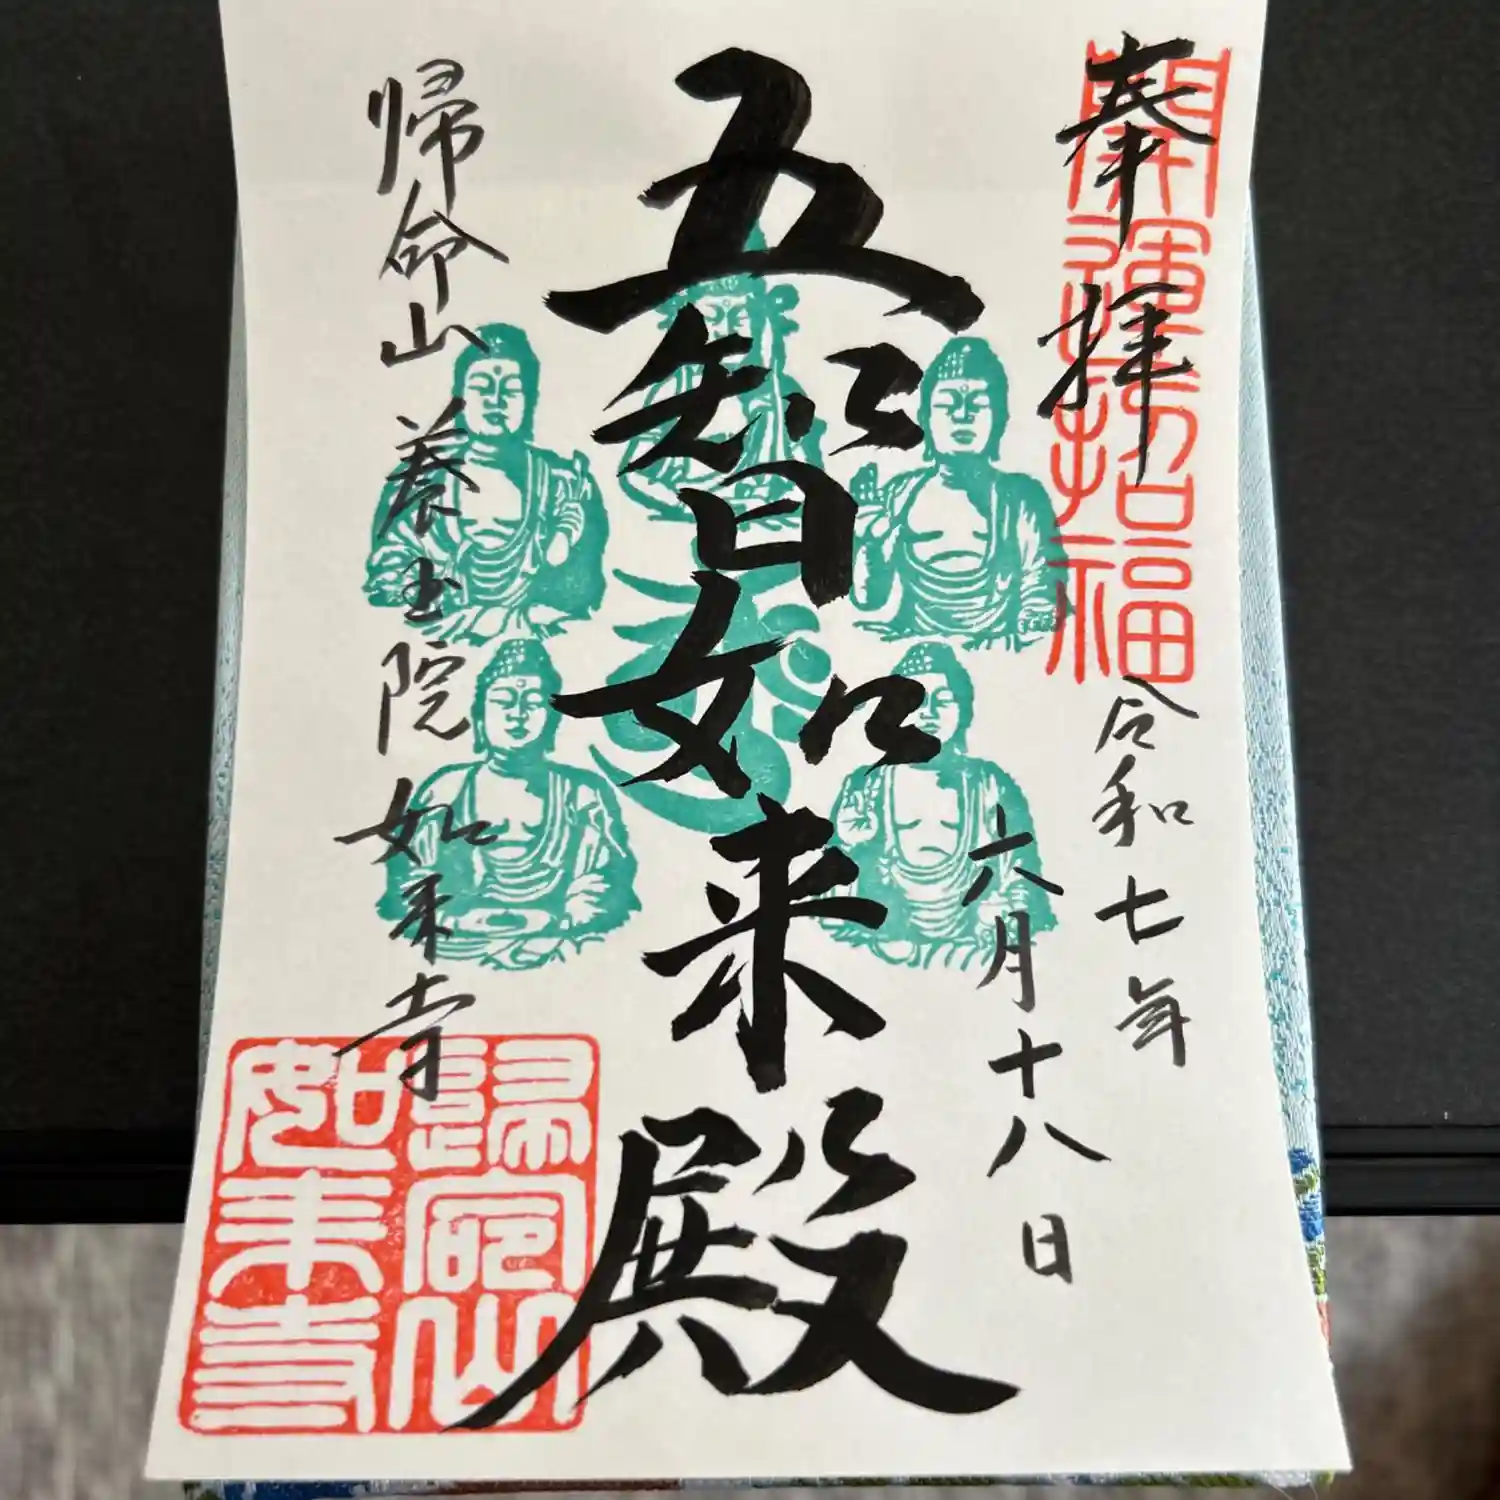 奉拝
開運招福
令和七年
六月十八日
五智如来殿
帰命山養玉院如来寺
歸命山
如来寺